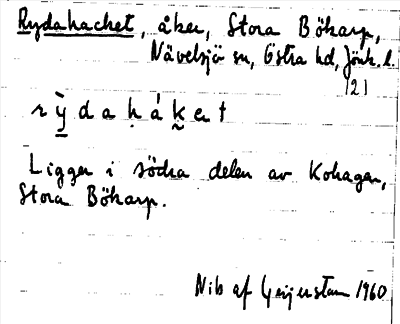 Rydahacket, åker, Stora Bökarp,
Nävelsjö sn, Östra hd, Jönk. l.
121
rỳdaháket
Ligger i södra delen av Kohagen,
Stora Bökarp.
Nils af Geijerstam 1960